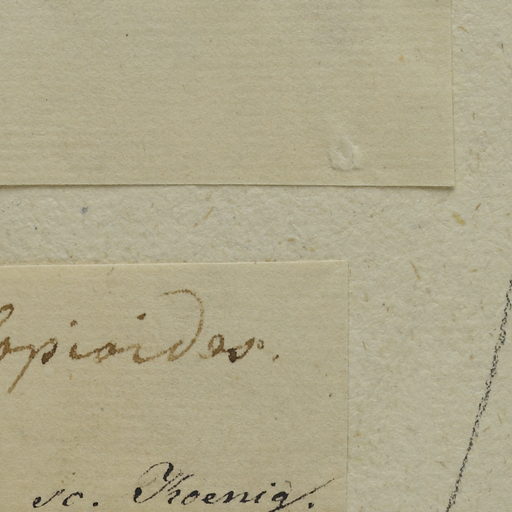 opioides.
sc. Koenig.